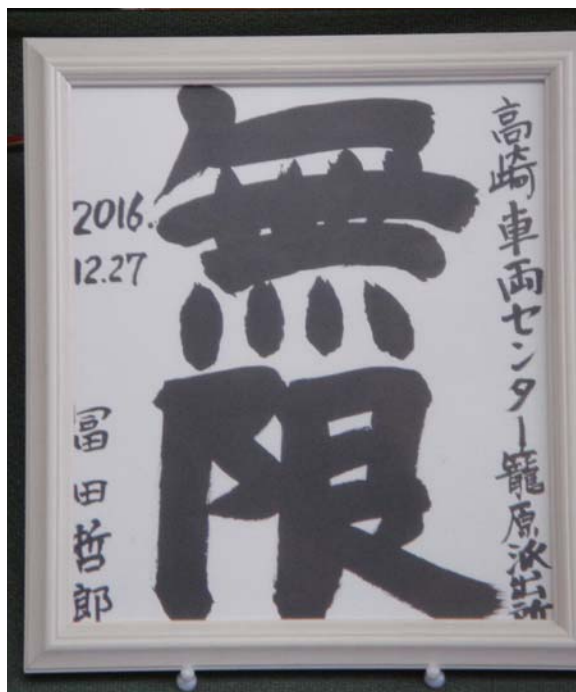 高崎車両センター籠原派出所
無限
2016.
12.27
冨田哲郎